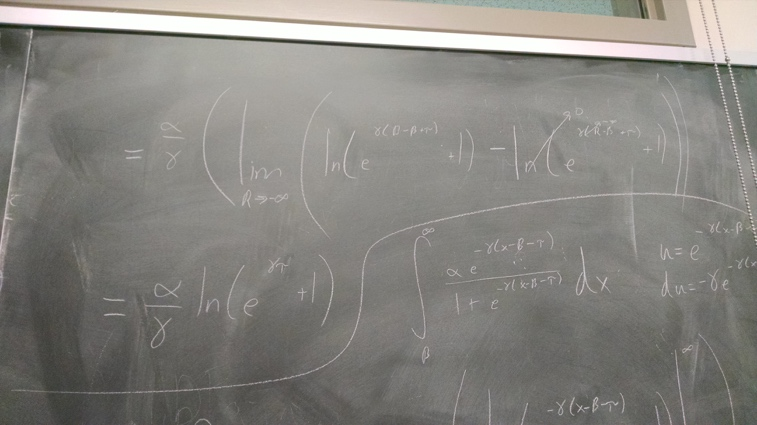 = α/γ ( lim R→-∞ ( ln( e^{γ(β-β+τ)} +1 ) - ln( e^{γ(R-β+τ)} +1 ) ) ) 0
= α/γ ln( e^{γτ} +1 )
∫_β^∞ α e^{-γ(x-β-τ)} / 1 + e^{-γ(x-β-τ)} dx
u = e^{-γ(x-β
du = -γe^{-γ(x
-γ(x-β-τ) ) |^∞